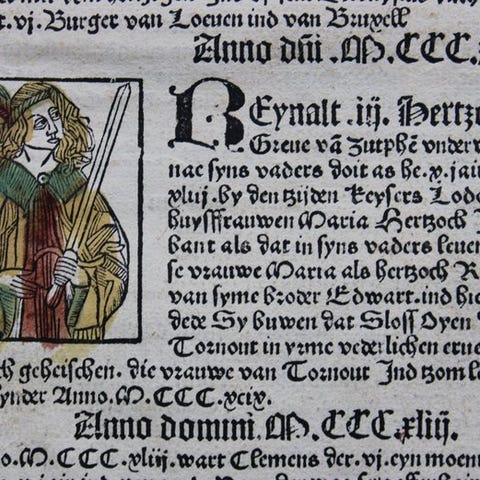 t.vj. Burger van Loeuen ind van Bruxell
Anno dñi .M.CCC.
REynalt .iij. Hertzo
Greue vā Zutphē vnder
nae syns vaders doit as he .x. jair
xliij. by den tzijden Keysers Lod
huysfrauwen Maria Hertzoch
bant als dat in syns vaders leuen
se vrauwe Maria als hertzoch R
van syme broder Edwart. ind hie
dede Sy buwen dat Sloss Oyen
Tornout in yrme vederlichen erue
ch geheischen. die vrauwe van Tornout Ind tzom l
ynder Anno.M.CCC.xcix.
Anno domini .M.CCC.xliij.
o.M.CCC.xliij. wart Clemens der .vj. eyn moen